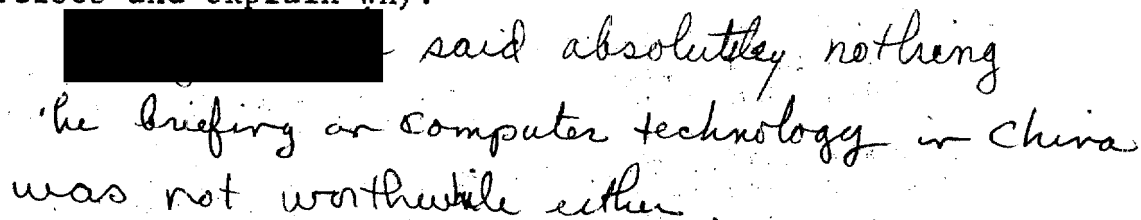 and explain why.
said absolutely nothing
he briefing on computer technology in China
was not worthwhile either.